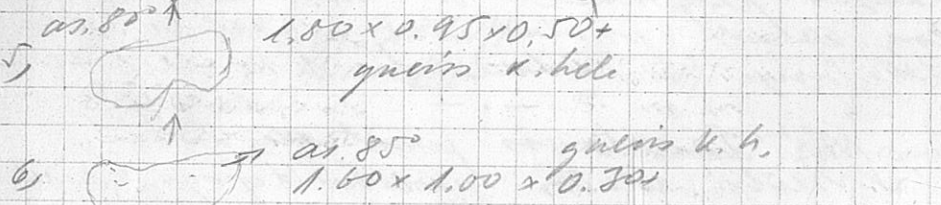 as. 85° 1.80 x 0.95 x 0.50+
5) gneiss k. hele
6) as. 85° gneiss k. h.
1.60 x 1.00 x 0.30+